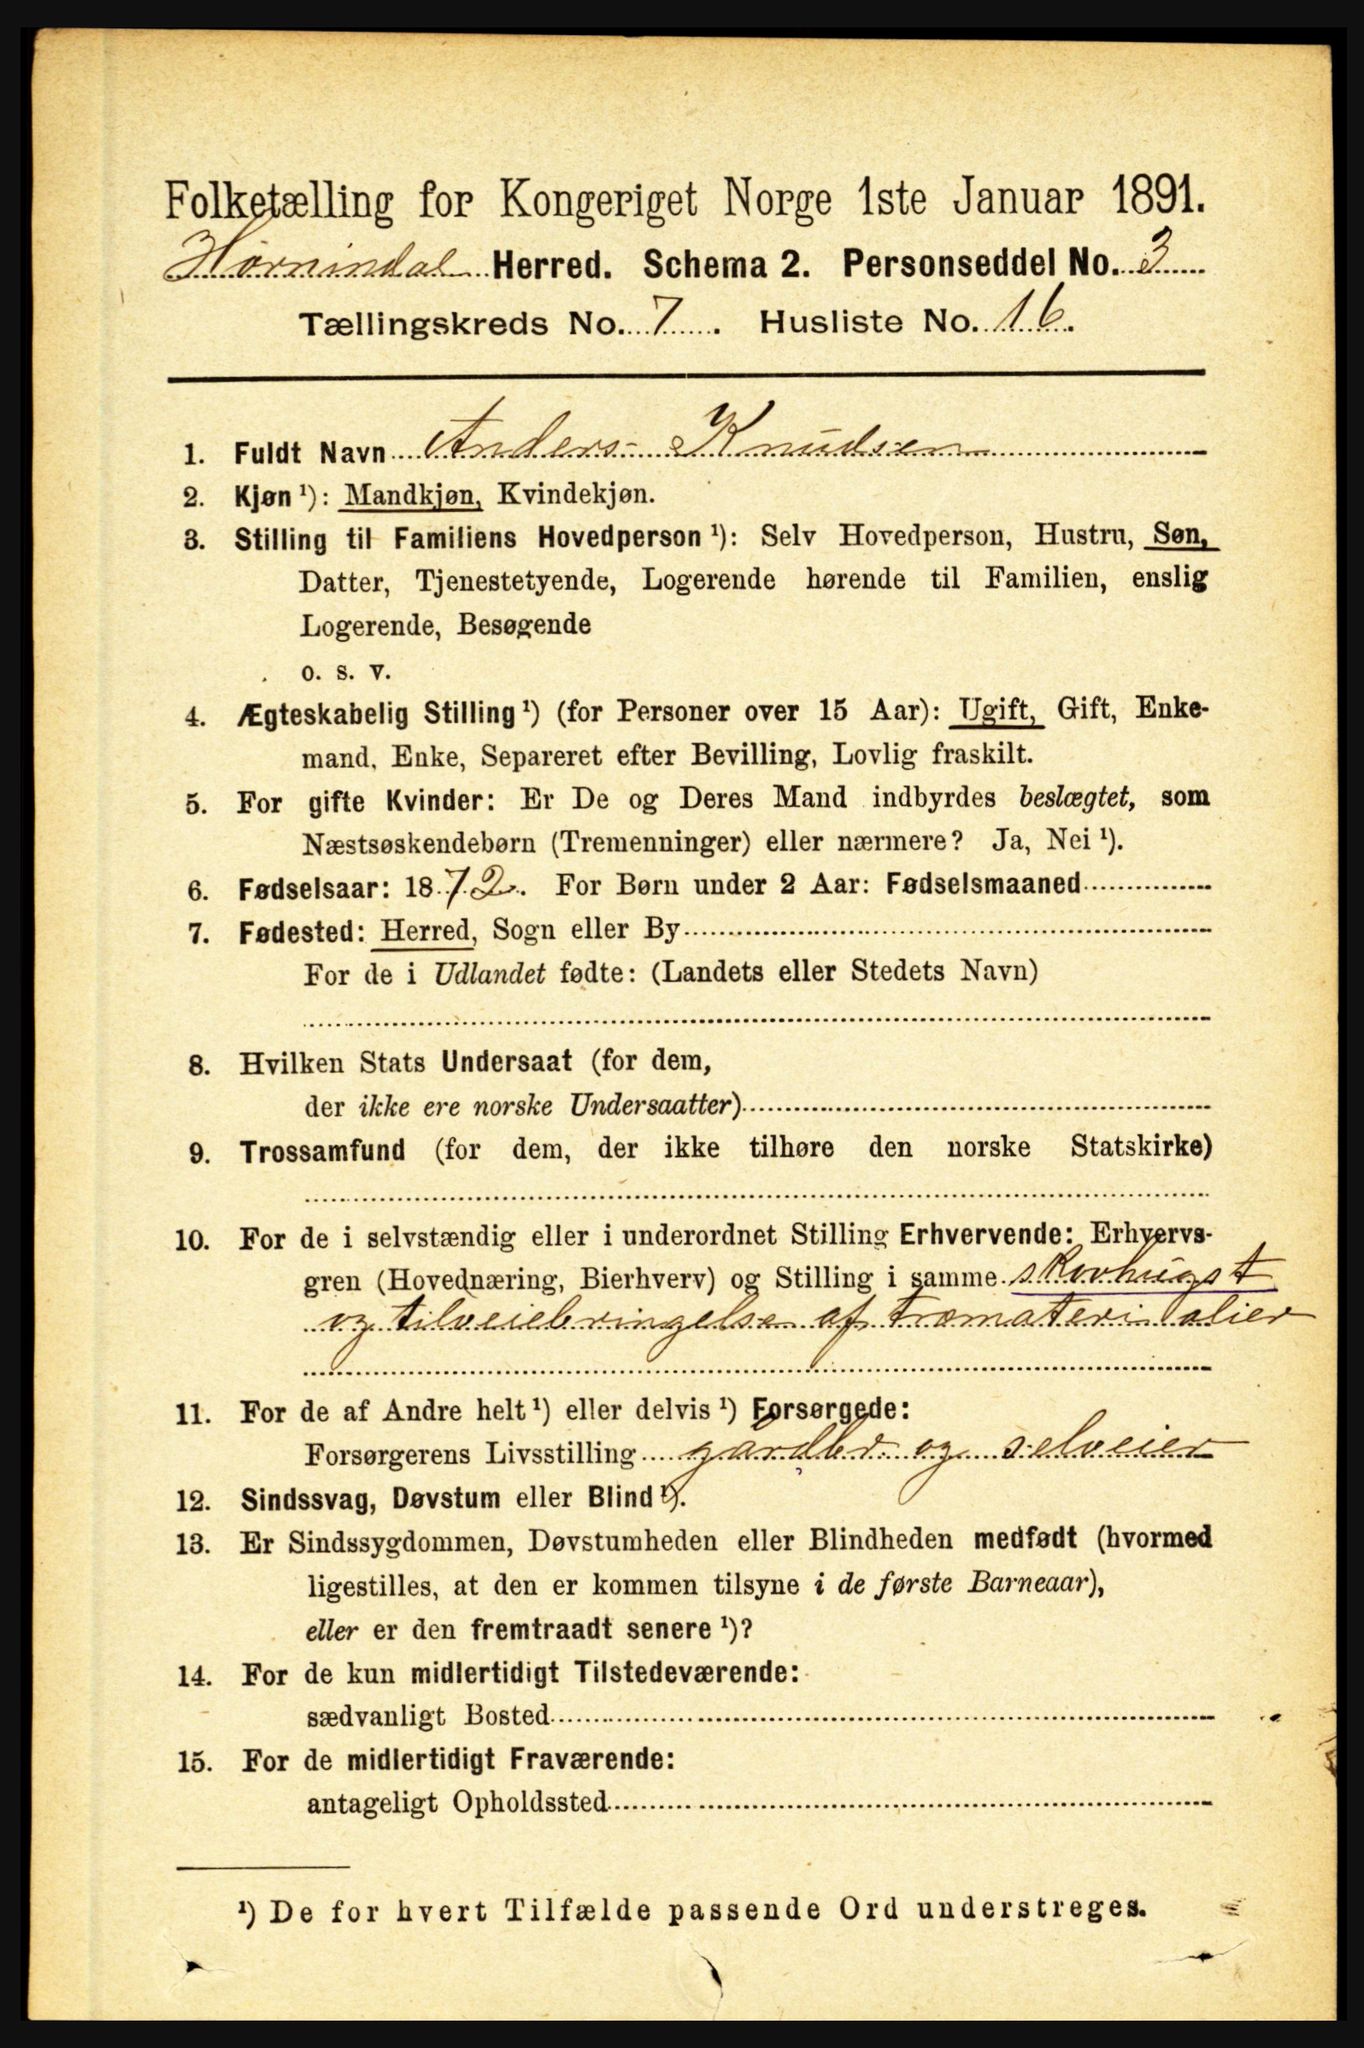 Folketælling for Kongeriget Norge 1ste Januar 1891.
Hornindal Herred. Schema 2. Personseddel No. 3
Tællingskreds No. 7. Husliste No. 16.
1. Fuldt Navn Anders Knudsen
2. Kjøn ¹): Mandkjøn, Kvindekjøn.
3. Stilling til Familiens Hovedperson ¹): Selv Hovedperson, Hustru, Søn,
Datter, Tjenestetyende, Logerende hørende til Familien, enslig
Logerende, Besøgende
o. s. v.
4. Ægteskabelig Stilling ¹) (for Personer over 15 Aar): Ugift, Gift, Enke-
mand, Enke, Separeret efter Bevilling, Lovlig fraskilt.
5. For gifte Kvinder: Er De og Deres Mand indbyrdes beslægtet, som
Næstsøskendebørn (Tremenninger) eller nærmere? Ja, Nei ¹).
6. Fødselsaar: 1872. For Børn under 2 Aar: Fødselsmaaned
7. Fødested: Herred, Sogn eller By
For de i Udlandet fødte: (Landets eller Stedets Navn)
8. Hvilken Stats Undersaat (for dem,
der ikke ere norske Undersaatter)
9. Trossamfund (for dem, der ikke tilhøre den norske Statskirke)
10. For de i selvstændig eller i underordnet Stilling Erhvervende: Erhvervs-
gren (Hovednæring, Bierhverv) og Stilling i samme skovhugst
og tilveiebringelse af træmaterialier
11. For de af Andre helt ¹) eller delvis ¹) Forsørgede:
Forsørgerens Livsstilling gårdbr og selveier
12. Sindssvag, Døvstum eller Blind ¹).
13. Er Sindssygdommen, Døvstumheden eller Blindheden medfødt (hvormed
ligestilles, at den er kommen tilsyne i de første Barneaar),
eller er den fremtraadt senere ¹)?
14. For de kun midlertidigt Tilstedeværende:
sædvanligt Bosted
15. For de midlertidigt Fraværende:
antageligt Opholdssted
¹) De for hvert Tilfælde passende Ord understreges.